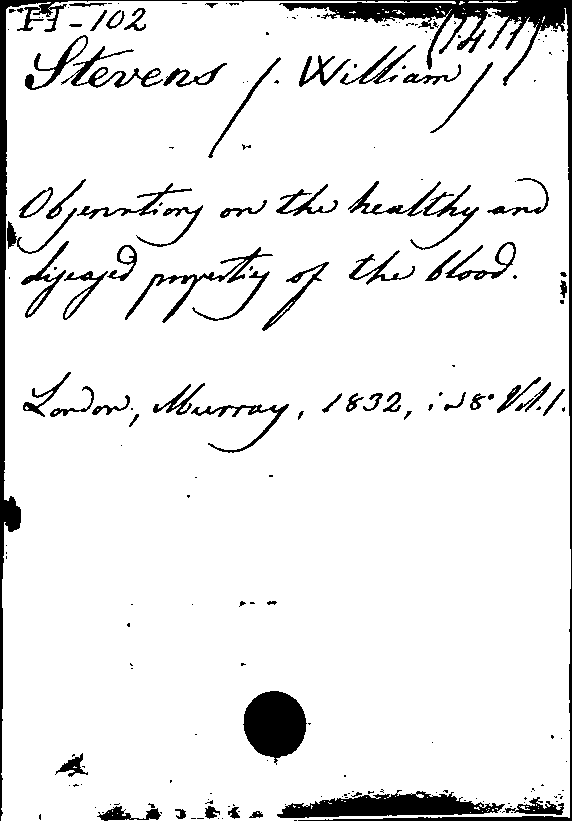 H-102
(1411)
Stevens (. William).
Observations on the healthy and
diseased properties of the blood.
London, Murray, 1832, in 8° Vol. 1.